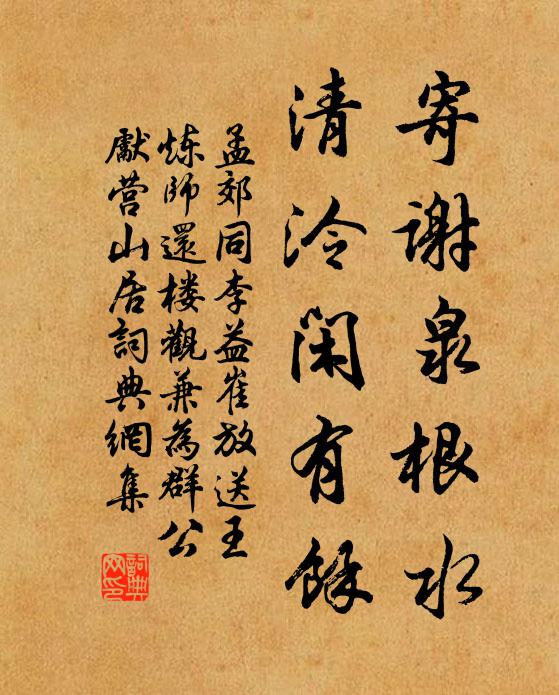 寄谢泉根水
清泠闲有餘
孟郊同李益崔放送王
炼师還楼觀兼為群公
獻营山居詞典網集
詞典网印